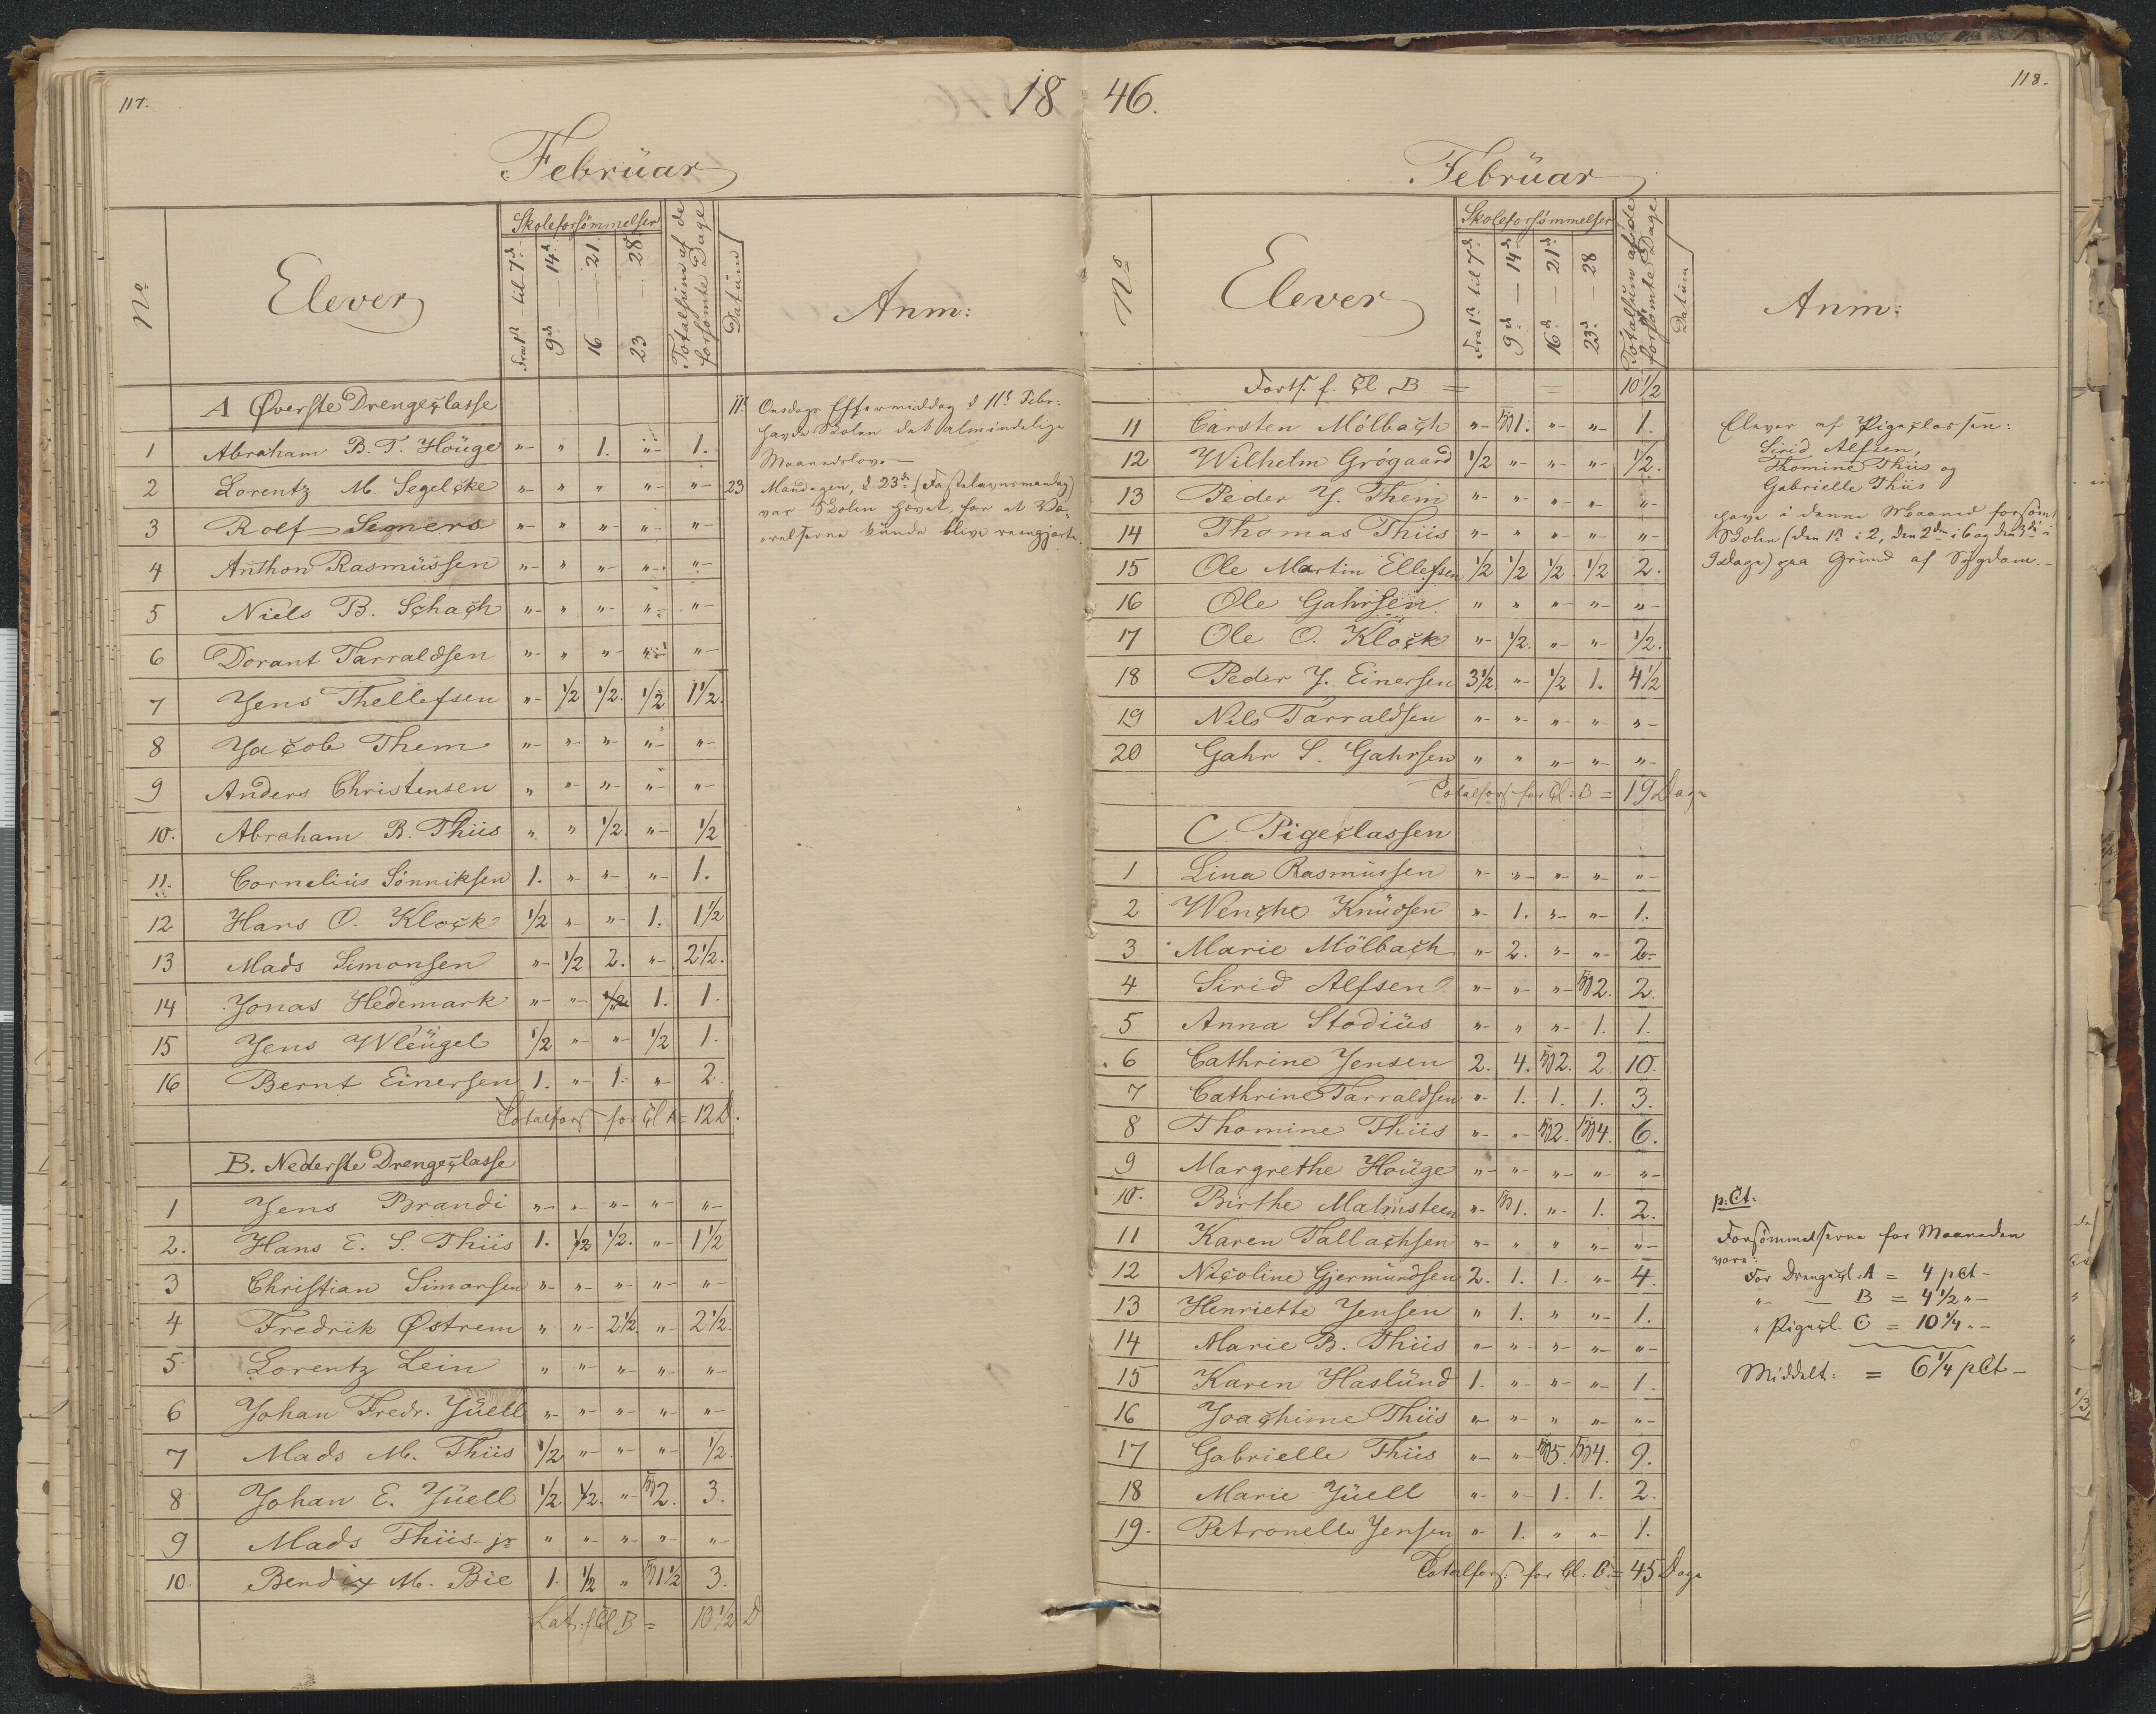 117.
18
Februar
No
Elever
Skoleforsömmelser
Fra 1ste til 7de
9de — 14de
16 — 21.
23 — 28
Totalsum af de forsömte Dage
Datum
Anm:
A Øverste Drengeclasse
1 Abraham B. T. Houge „ „ 1. „ 1.
2 Lorentz M. Segelcke „ „ „ „ „
3 Rolf Semers „ „ „ „ „
4 Anthon Rasmussen „ „ „ „ „
5 Niels B. Schach „ „ „ „ „
6 Dorant Tarraldsen „ „ „ „ „
7 Jens Thellefsen „ 1/2 1/2. 1/2 1 1/2.
8 Jacob Them „ „ „ „ „
9 Anders Christensen „ „ „ „ „
10. Abraham B. Thiis „ „ 1/2. „ 1/2
11. Cornelius Sönniksen 1. „ „ „ 1.
12 Hans O. Klock 1/2 „ „ 1. 1 1/2
13 Mads Simonsen „ 1/2 2. „ 2 1/2.
14 Jonas Hedemark „ „ 1/2 1. 1.
15 Jens Wleugel 1/2 „ „ 1/2 1.
16 Bernt Einersen 1. „ 1. „ 2
Totalfors for Cl A = 12 D.
B. Nederste Drengeclasse
1 Jens Brandi „ „ „ „ „
2. Hans E. S. Thiis 1. 1/2 1/2. „ 1 1/2
3 Christian Simonsen „ „ „ „ „
4 Fredrik Østrem „ „ 2 1/2. „ 2 1/2.
5 Lorentz Lein „ „ „ „ „
6 Johan Fredr. Juell „ „ „ „ „
7 Mads M. Thiis 1/2 „ „ „ 1/2.
8 Johan E. Juell 1/2 1/2. „ 2. 3.
9 Mads Thiis jr „ „ „ „ „
10. Bendix M. Bie 1. 1/2 „ 1 1/2 3.
Lat: f Cl B = 10 1/2 D
11te Onsdags Eftermiddag d 11te Febr:
havde Skolen det almindelige
Maanedslov.
23 Mandagen, d 23de (Fastelavnsmandag)
var Skolen hævet, for at Væ-
relserne kunde blive reengjorte.
118.
46.
Februar
No
Elever
Skoleforsömmelser
Fra 1ste til 7de
9de — 14de
16de — 21de
23de — 28
Totalsum af de forsömte Dage
Datum
Anm:
Forts. f. Cl B = = 10 1/2
11 Carsten Mölbach „ 1. „ „ 1.
12 Wilhelm Grögaard 1/2 „ „ „ 1/2.
13 Peder J. Them „ „ „ „ „
14 Thomas Thiis „ „ „ „ „
15 Ole Martin Ellefsen 1/2 1/2 1/2 1/2 2.
16 Ole Gahrsen. „ „ „ „ „
17 Ole O. Klock „ 1/2. „ „ 1/2.
18 Peder J. Einersen 3 1/2. „ 1/2 1. 4 1/2
19 Nils Tarraldsen „ „ „ „ „
20 Gahr S. Gahrsen „ „ „ „ „
Totalfors for Cl: B = 19 Dage
C Pigeclassen
1 Lina Rasmussen „ „ „ „ „
2 Wenche Knudsen „ 1. „ „ 1.
3 Marie Mölbach „ 2. „ „ 2.
4 Sirid Alfsen „ „ „ 2. 2.
5 Anna Stodius „ „ „ 1. 1.
6 Cathrine Jensen 2. 4. 2. 2 10.
7 Cathrine Tarraldsen „ 1. 1. 1. 3.
8 Thomine Thiis „ „ 2. 4. 6.
9 Margrethe Houge „ „ „ „ „
10. Birthe Malmsteen „ 1. „ 1. 2.
11 Karen Tallachsen „ „ „ „ „
12 Nicoline Gjermundsen 2. 1. 1. „ 4.
13 Henriette Jensen „ 1. „ „ 1.
14 Marie B. Thiis „ „ „ „ „
15 Karen Haslund 1. „ „ „ 1.
16 Joachime Thiis „ „ „ „ „
17 Gabrielle Thiis „ „ 5. 4. 9.
18 Marie Juell „ „ 1. 1. 2.
19. Petronelle Jensen „ 1. „ „ 1.
Totalfors: for Cl: C = 45 Dage
Elever af Pigeclassen:
Sirid Alfsen,
Thomine Thiis og
Gabrielle Thiis
have i denne Maaned forsömt
Skolen (den 1ste i 2, den 2den i 6 og den 3die i
9 dage) paa Grund af Sygdom.
p: Ct.
Forsömmelserne for Maaneden
vare:
For Drengecl: A = 4 pCt
„ — B = 4 1/2 „
„ Pigecl. C = 10 1/4 „
Middelt: = 6 1/4 pCt